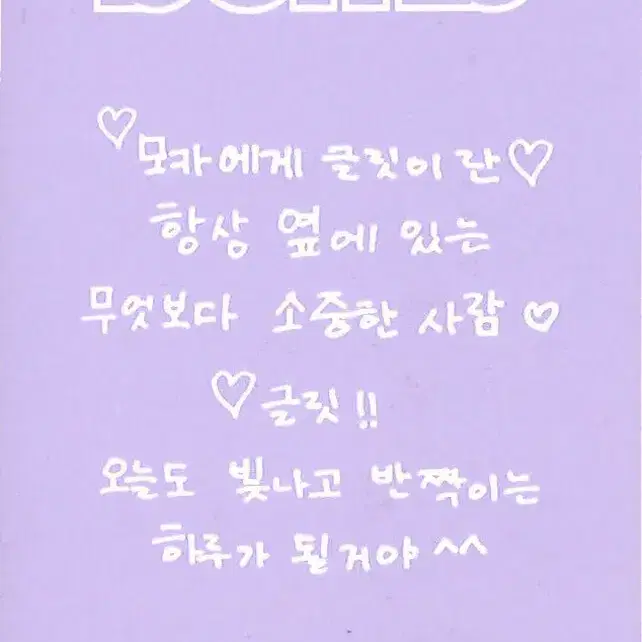 ♡모카에게 글릿이란♡
항상 옆에 있는
무엇보다 소중한 사람♡
♡글릿!!
오늘도 빛나고 반짝이는
하루가 될거야 ^^